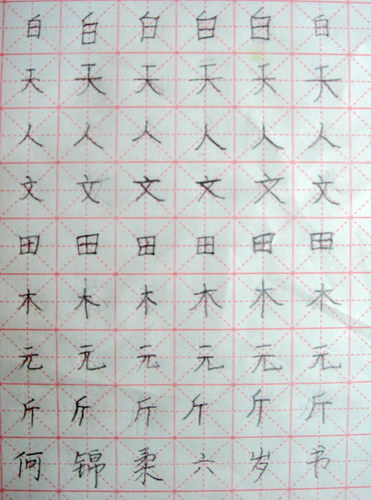 白 白 白 白 白 白
天 天 天 天 天 天
人 人 人 人 人 人
文 文 文 文 文 文
田 田 田 田 田 田
木 木 木 木 木 木
元 元 元 元 元 元
斤 斤 斤 斤 斤 斤
何 锦 柔 六 岁 书